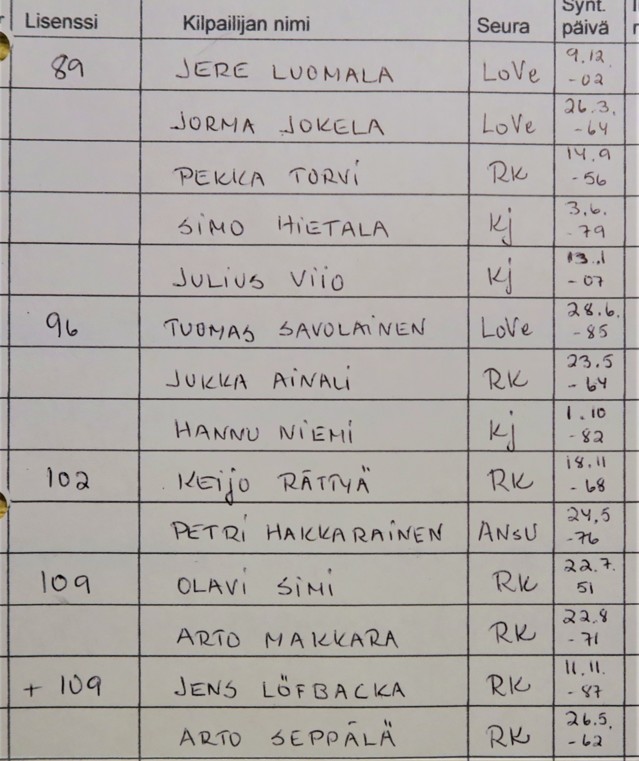 Lisenssi Kilpailijan nimi Seura Synt. päivä
89 JERE LUOMALA LoVe 9.12 -02
JORMA JOKELA LoVe 26.3. -64
PEKKA TORVI RK 14.9 -56
SIMO HIETALA Kj 3.6. -79
JULIUS VIIO Kj 13.1 -07
96 TUOMAS SAVOLAINEN LoVe 28.6. -85
JUKKA AINALI RK 23.5 -64
HANNU NIEMI Kj 1.10 -82
102 KEIJO RÄTTYÄ RK 18.11 -68
PETRI HAKKARAINEN ANSU 24,5 -76
109 OLAVI SIMI RK 22.7. 51
ARTO MAKKARA RK 22.8 -71
+ 109 JENS LÖFBACKA RK 11.11. -87
ARTO SEPPÄLÄ RK 26.5. -62